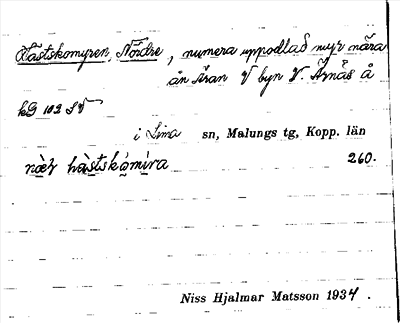 Hästskomyren, Nordre, numera uppodlad myr nära
ån Åran V byn V. Ärnäs å
kG 102 SV
i Lima sn, Malungs tg, Kopp. län
nœ̀ḷ hàstskómìra 260.
Niss Hjalmar Matsson 1934.